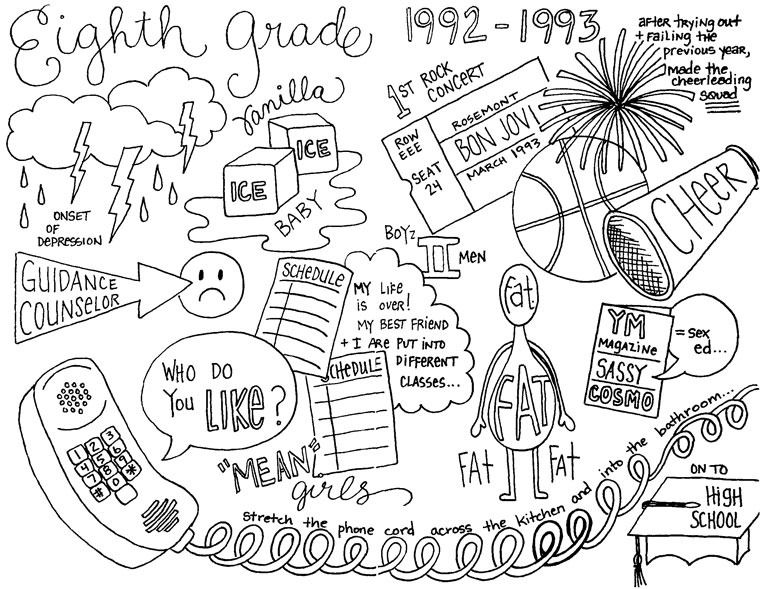 Eighth grade
1992-1993
after trying out
+ failing the
previous year,
made the
cheerleading
squad
1ST ROCK
CONCERT
ROW
EEE
SEAT
24
ROSEMONT
BON JOVI
MARCH 1993
vanilla
ICE
ICE
BABY
ONSET
OF
DEPRESSION
CHEER
BOYZ
II
MEN
GUIDANCE
COUNSELOR
SCHEDULE
MY LIFE
IS OVER!
MY BEST FRIEND
+ I ARE PUT INTO
DIFFERENT
CLASSES...
Fat
FAT
FAT
FAT
YM
MAGAZINE
SASSY
COSMO
= sex
ed...
WHO DO
YOU LIKE?
CHEDULE
"MEAN"
girls
1 2 3
4 5 6
7 8 9
# 0 *
Stretch the phone cord across the kitchen and into the bathroom...
ON TO
HIGH
SCHOOL